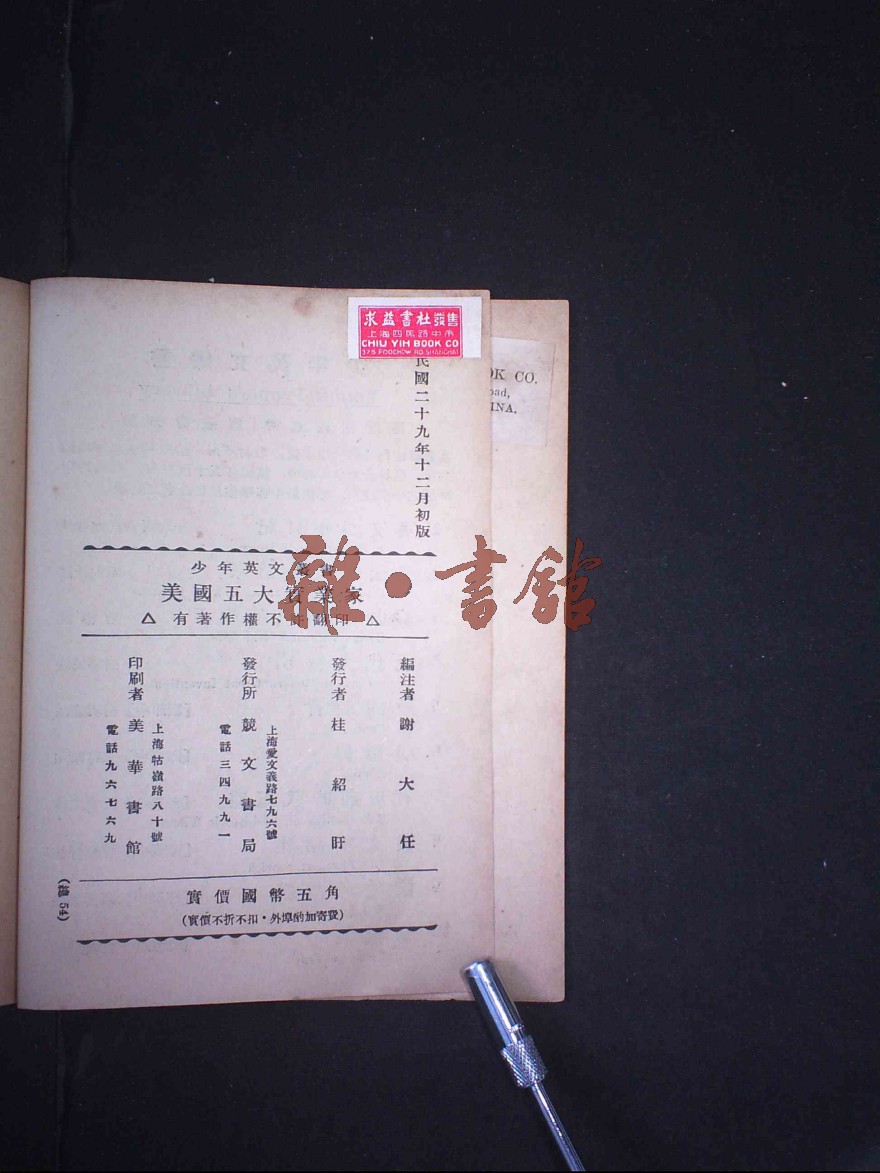 求益書社發售
上海四馬路中市
CHIU YIH BOOK CO
375 FOOCHOW RD. SHANGHAI
OK CO.
oad,
INA.
民國二十九年十二月初版
少年英文叢書
美國五大實業家
△ 有著作權不許翻印 △
編注者 謝大任
發行者 桂紹盱
上海愛文義路七九六號
發行所 競文書局
電話三四九九一
上海牯嶺路八十號
印刷者 美華書館
電話九六七六九
實價國幣五角
(實價不折不扣・外埠酌加寄費)
(總 54)
雜・書館